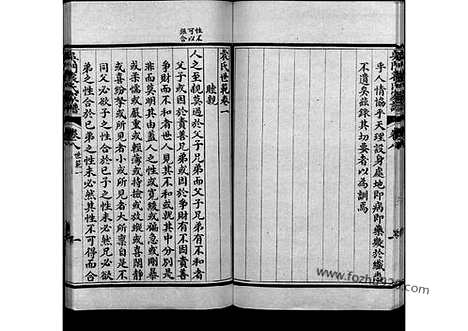 乎人情協乎天理設身處地即病即藥幾於纖悉
不遺矣茲錄其切要者以為訓焉
性不
可以
強合
袁氏世範卷一
睦親
人之至親莫過於父子兄弟而父子兄弟有不和者
父子或因於責善兄弟或因於爭財有不因責善
爭財而不和者世人見其不和或就其中分別是
非而莫明其由蓋人之性或寬緩或褊急或剛暴
或柔懦或嚴重或輕薄或持撿或放縱或喜閒靜
或喜紛拏或所見者小或所見者大所稟自是不
同父必欲子之性合於己子之性未必然兄必欲
弟之性合於己弟之性未必然其性不可得而合
卷八 世範一
一
www.fozhu920.com